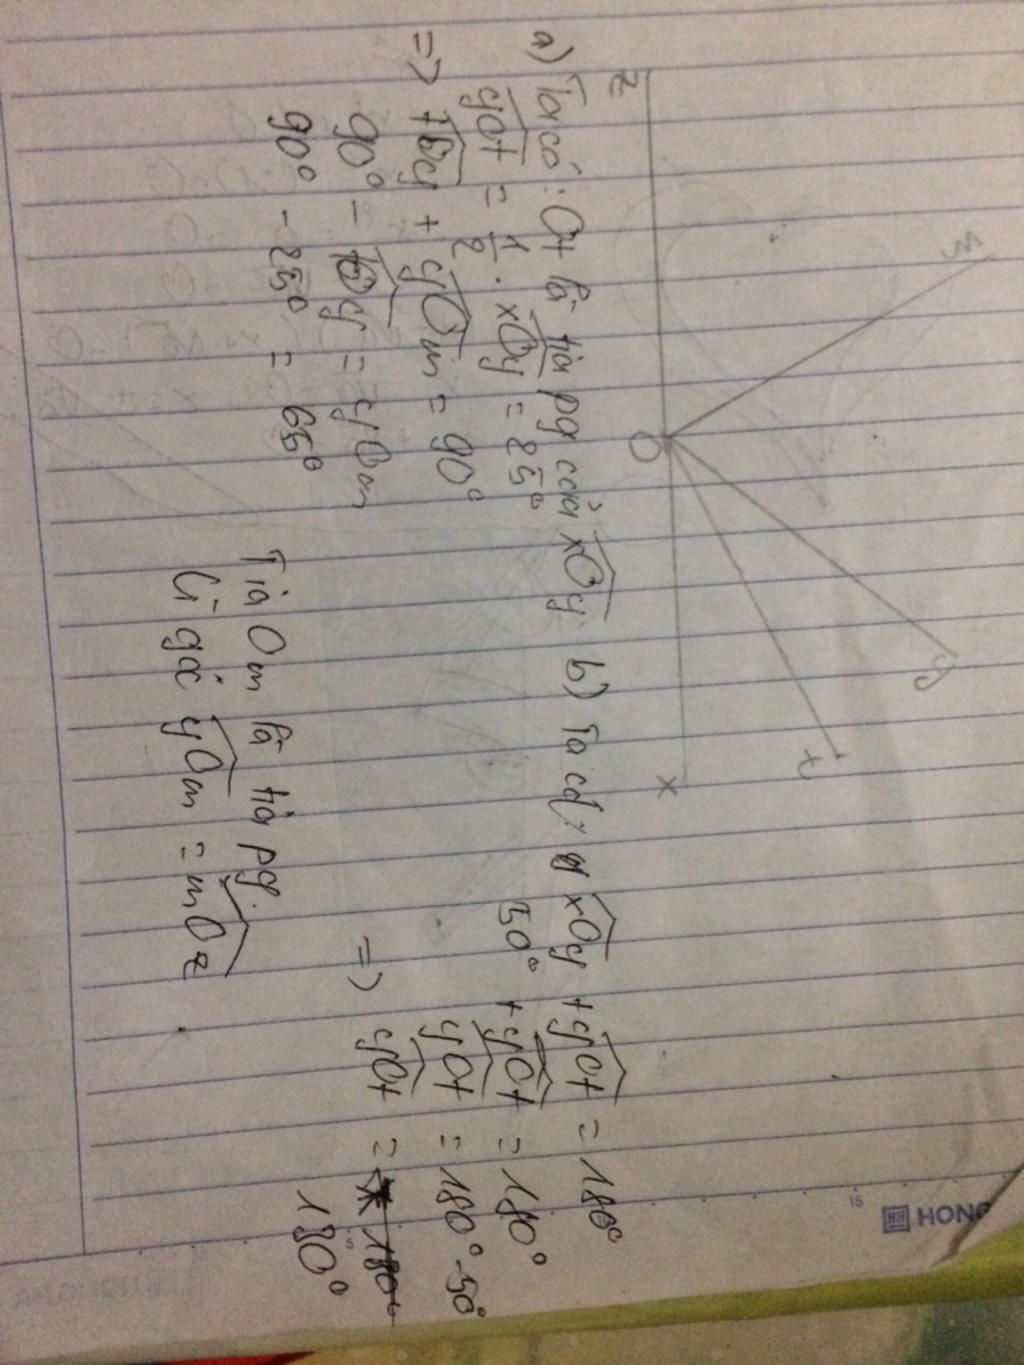 z
m
O
y
t
x
a) Ta có: Ot là tia pg của xOy
yOt = 1/2 . xOy = 25°
=> tOy + yOm = 90°
90° - tOy = yOm
90° - 25° = 65°
b) Ta có: xOy + yOt = 180°
50° + yOt = 180°
yOt = 180° - 50°
=> yOt =
180°
Tia Om là tia pg.
Vì góc yOm = mOz
HONG
15
5